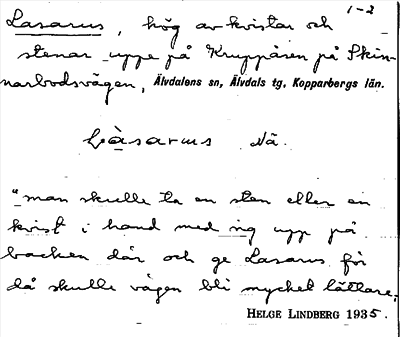 1-2
Lasarus, hög av kvistar och
stenar uppe på Kruppåsen på Skin-
narbodsvägen, Älvdalens sn, Älvdals tg, Kopparbergs län.
làsarus Nä.
"man skulle ta en sten eller en
kvist i hand med sig upp på
backen där och ge Lasarus för
då skulle vägen bli mycket lättare.
HELGE LINDBERG 1935.